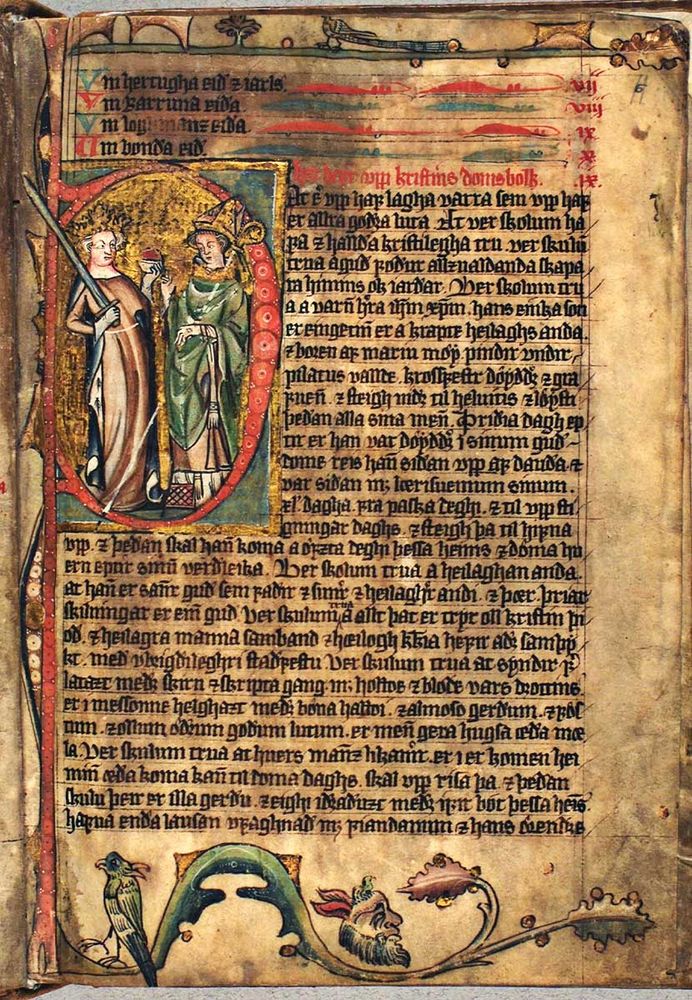 Vm hertugha eid ⁊ iarls. vij
Vm barruna eida viij
Vm logmanz eida. ix
Vm bonda eid. x
Her hefr vpp kristins doms bolk. ix.
At er vpp haf lagha varra sem vpp haf
er allra godra luta. At ver skolum ha
fa ⁊ halda kristilegha tru. ver skulu
trua a gud fodur allzualdanda skapa
ra himins ok iardar. Ver skolum tru
a a varn hra ihm xpm. hans einka son
er eingetinn er a krapte heilaghs anda.
⁊ boren af mariu møy pindr vndir
pilatus vallde. krossfestr døyddr ⁊ gra
fuen. ⁊ steigh nidr til heluitis ⁊ løysti
þedan alla sina men. Þridia dagh ep
tir er han var døyddr i sinum gud
dome reis han sidan vpp af dauda. ⁊
var sidan mz lærisueinum sinum.
xl dagha. fra paska deghi. ⁊ til vpp sti
gningar daghs. ⁊ steigh þa til himna
vpp. ⁊ þedan skal han koma a øfzta deghi þessa heims ⁊ døma hu
ern eptir sinum verdleika. Ver skolum trua a heilaghan anda.
at han er sannr gud sem fadir ⁊ sunr ⁊ heilaghr andi. ⁊ þær þriar
skilningar er ein gud. Ver skulum trua a allt þat er trvr oll kristin þi
od. ⁊ heilagra manna samband ⁊ hæilogh kkia hefir adr samþy
kt. med vbrigdileghri stadfestu Ver skulum trua at syndir f
latazt medr skirn ⁊ skripta gang. mz hollde ⁊ blode vars drottins.
er i messonne helghazt medr bøna halldi. ⁊ almoso gerdum. ⁊ fos
tum. ⁊ ollum odrum godum lutum. er men gera hugsa æda mæ
la Ver skulum trua at huers manz likamr. er i er komen hei
min æda koma kan til doma daghs. skal vpp risa þa. ⁊ þedan
skulu þeir er illa gerdu. ⁊ eighi idraduzt medr yfirbot þessa heims
hafua enda lausan vfaghnad mz fiandanum ⁊ hans ørendre